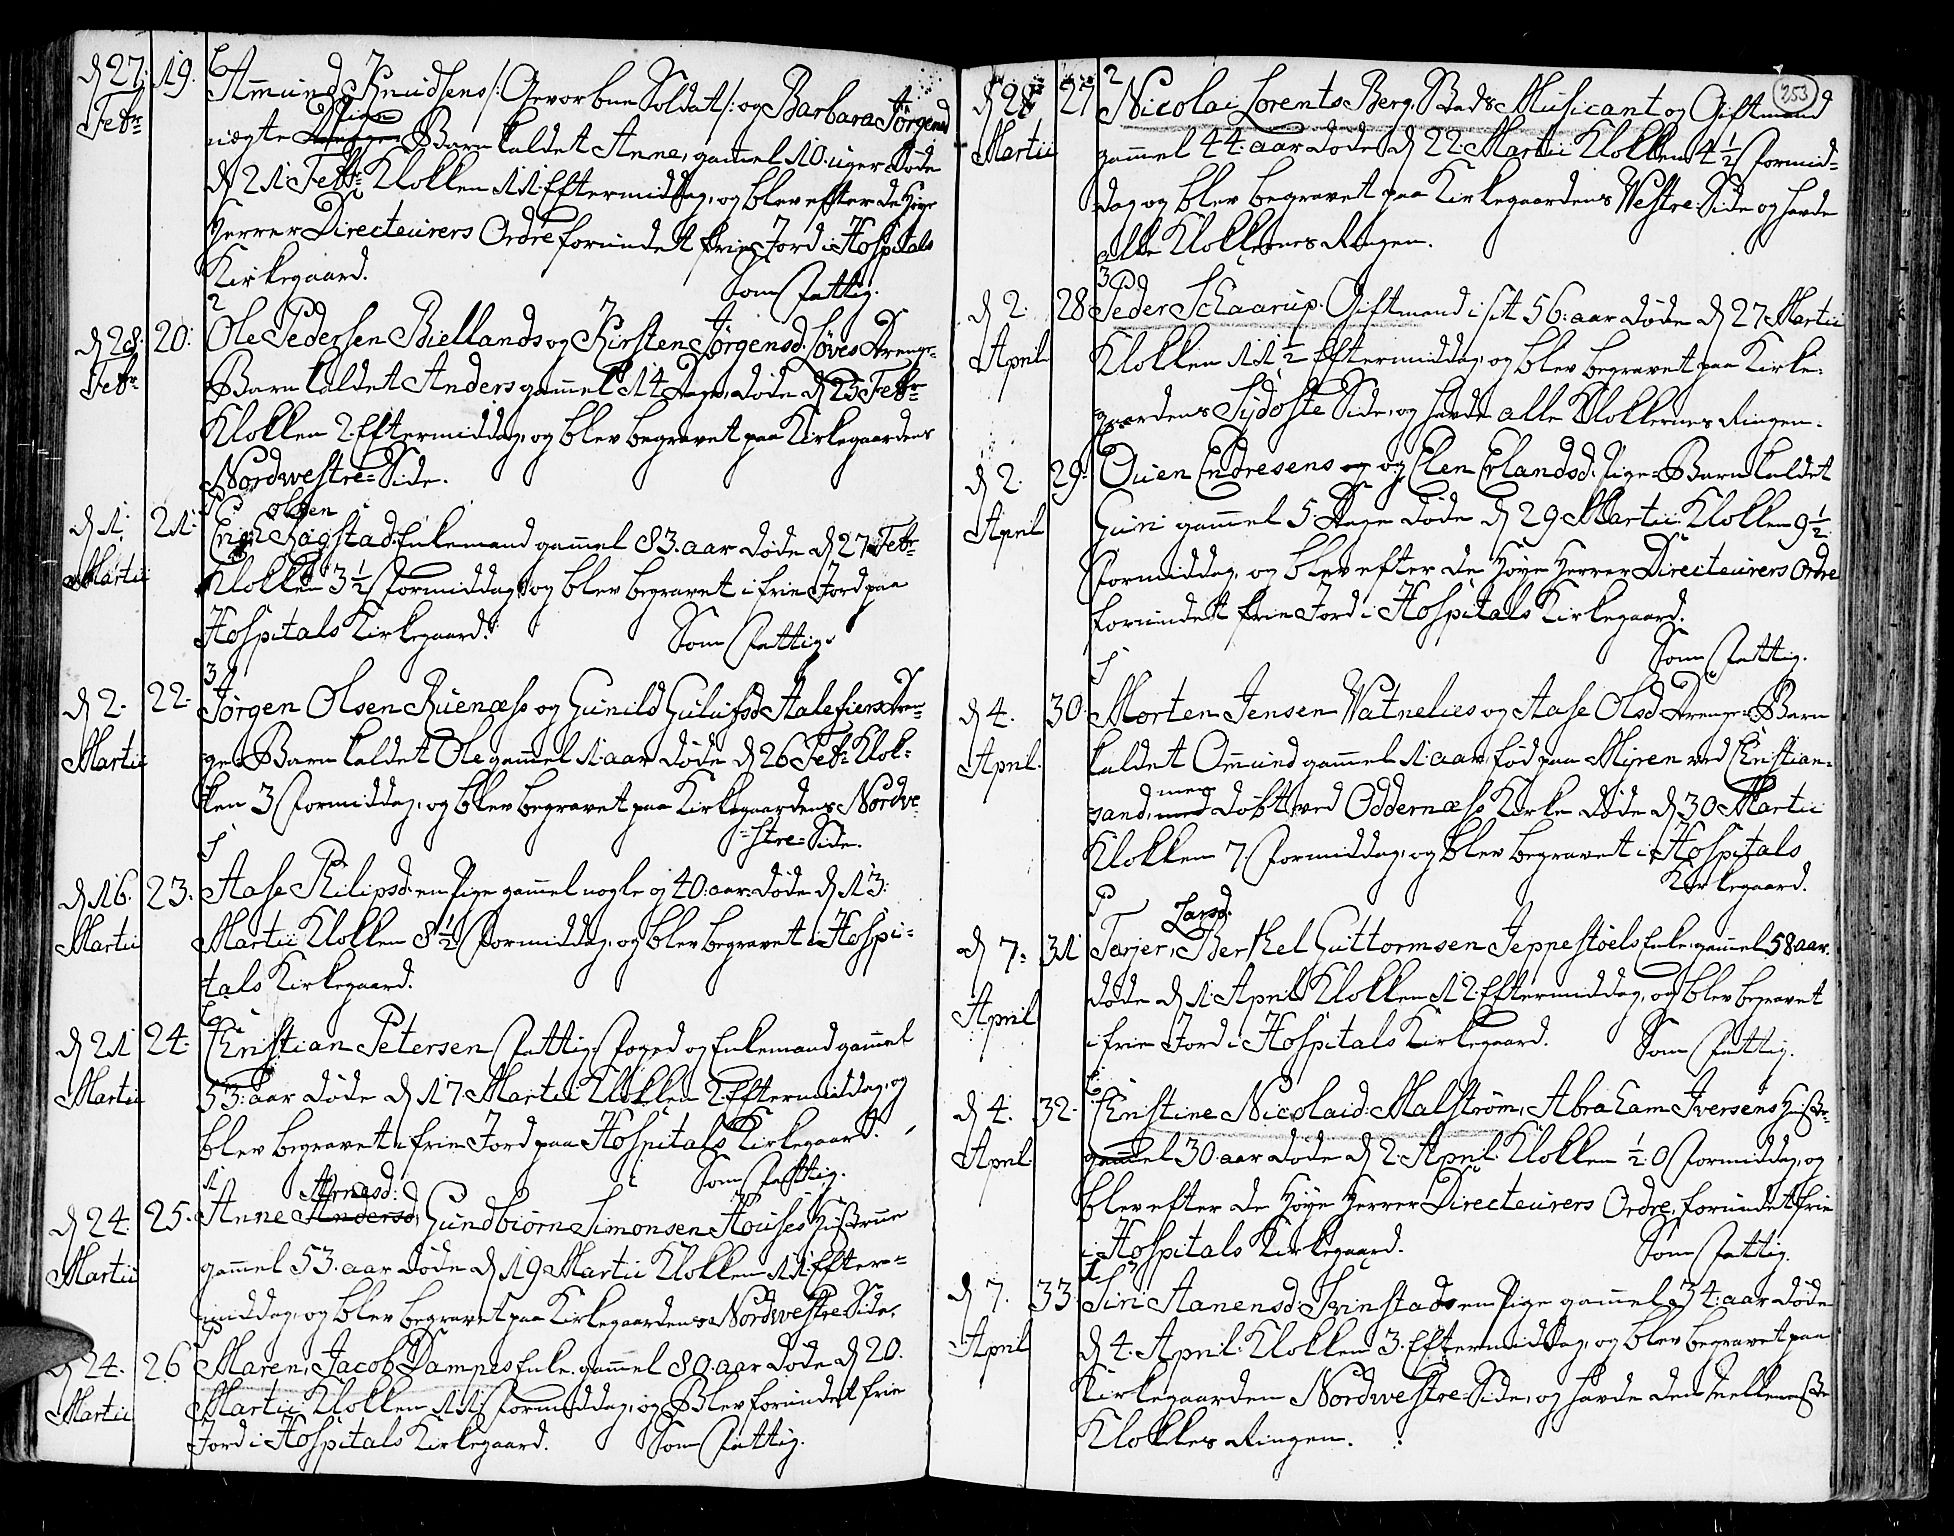 d 27. 19. Amund Knudsens /: Gevorbne Soldat :/ og Barbara Jørgensd
Febr: Pige
ægte Barn kaldet Anne, gamel 10: uger døde
d 21: Febr: Klokken 11: Eftermiddag, og blev efter de Høye
Herrer Directeurers Ordre forundet frie Jord i Hospitals
Kirkegaard. Som Fattig.
2
d 28. 20: Ole Pedersen Biellands og Kirsten Jørgensd: Drenge-
Febr: Barn kaldet Anders gamel 14 Dage, døde d 25 Febr:
Klokken 2 Eftermiddag, og blev begravet paa Kirkegaardens
Nordwestre-Side.
Olsen
d 1. 21: Erich Røgstad. Enkemand gamel 83. aar døde d 27 Febr:
Martii Klokken 3½ Formiddag, og blev begravet i frie Jord paa
Hospitals Kirkegaard. Som Fattig.
3
d 2. 22. Jørgen Olsen Ruenæss og Gunild Gulufsd Aalefiers Dren-
Martii ge-Barn kaldet Ole gamel 1. aar døde d 26 Febr: Klok-
ken 3 Formiddag, og blev begravet paa Kirkegaardens Nordve-
-stre-Side.
d 16. 23. Aase Philipsd: en Pige gamel nogle og 40: aar døde d 13:
Martii Martii Klokken 8½ Formiddag, og blev begravet i Hospi-
tals Kirkegaard.
d 21 24. Christian Petersen Fattig Foged og Enkemand gamel
Martii 53: aar døde d 17 Martii Klokken 2 Eftermiddag, og
blev begravet i frie Jord paa Hospitals Kirkegaard.
Som Fattig.
Arnesd:
d 24. 25. Anne Andersd, Gundbiørn Simonsen Houses Hustrue
Martii gamel 53. aar døde d 19 Martii Klokken 11 Efter-
middag, og blev begravet paa Kirkegaardens Nordwestre-Side.
d 24. 26 Maren, Jacob Dampes Enke. gamel 80. aar døde d 20.
Martii Martii Klokken 11 Formiddag, og Blev forundet frie
Jord i Hospitals Kirkegaard. Som Fattig.
253
2
27 Nicolai Lorents Berg. Stads Musicant og Giftmand
Martii gammel 44: aar døde d 22: Martii Klokken 4½ Formid-
dag og blev begravet paa Kirkegaardens Westre-Side og havde
alle Klokkernes Ringen.
3
d 2. 28. Peder Schaarup. Giftmand i sit 56: aar døde d 27 Martii
April Klokken 11½ Eftermiddag, og blev begravet paa Kirke-
gaardens Sydoste Side, og havde alle Klokkernes Ringen.
d 2. 29. Ouen Endresens og og Elen Erlandsd. Pige-Barn kaldet
April Guri gammel 5. Dage døde d 29 Martii Klokken 9½
Formiddag, og blev efter de Høye Herrer Directeurers Ordre
forundet frie Jord i Hospitals Kirkegaard.
Som Fattig.
d 4. 30. Morten Jensen Vatnelies og Aase Olsd Drenge-Barn
April. kaldet Omund gammel 1. aar, fød paa Myren ved Christian-
sand, men døbt ved Oddernæss Kirke døde d 30 Martii
Klokken 7. Formiddag, og blev begravet i Hospitals
Kirkegaard.
Larsd:
d 7. 31 Tarjer, Berthel Guttormsen Jeppestøels Enke. gammel 58 aar.
April døde d 1. April Klokken 12 Eftermiddag, og blev begravet
i frie Jord i Hospitals Kirkegaard. Som Fattig.
d 4. 32. Christine Nicolaid: Malstrøm, Abraham Iversens Hustr-
April gammel 30. aar døde d 2. April Klokken ½ 0 Formiddag, og
blev efter de Høye Herrer Directeurers Ordre, forundet frie
i Hospitals Kirkegaard. Som Fattig.
d 7. 33. Siri Aanensd: Svinstads en Pige gammel 34. aar døde
April d 4. April Klokken 3. Eftermiddag, og blev begravet paa
Kirkegaarden Nordwestre-Side, og havde den
Klokkes Ringen.